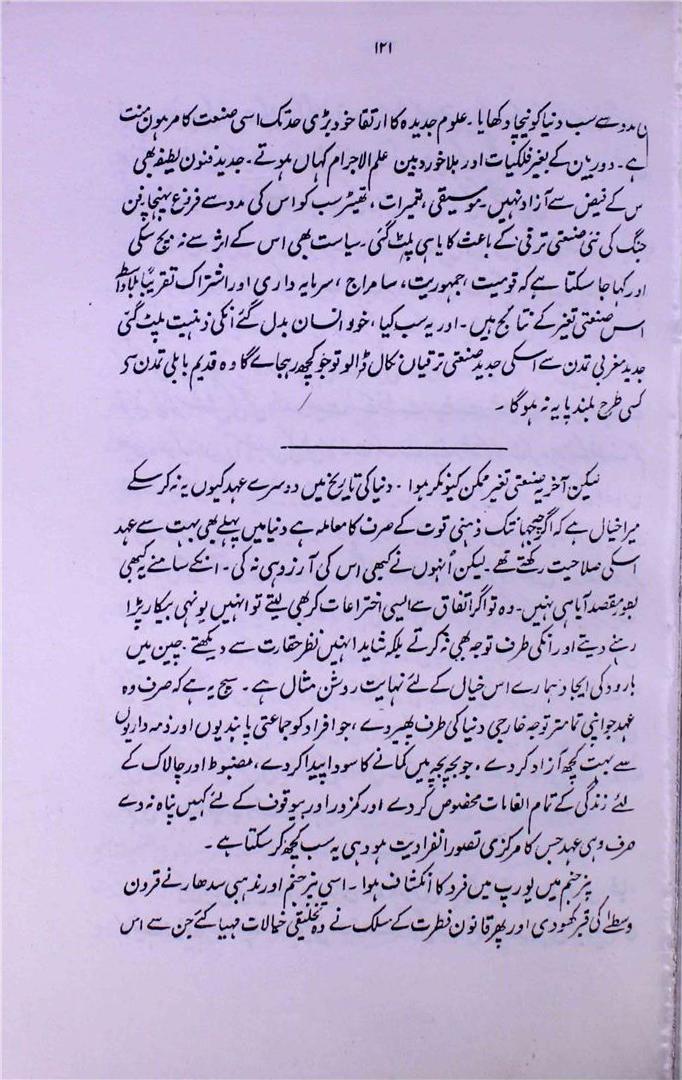 ۱۲۱
کی مدد سے سب دنیا کو نیچا دکھایا ۔ علوم جدیدہ کا ارتقا خود بڑی حد تک اسی صنعت کا مرہون منت
ہے ۔ دوربین کے بغیر فلکیات اور بلا خوردبین علم الاجرام کہاں ہوتے ۔ جدید فنون لطیفہ بھی
س کے فیض سے آزاد نہیں ۔ موسیقی ، تعمیرات ، تھیٹر سب کو اس کی مدد سے فروغ پہنچا ۔ فن
جنگ کی نئی صنعتی ترقی کے باعث کایا ہی پلٹ گئی ۔ سیاست بھی اس کے اثر سے نہ بچ سکی
اور کہا جا سکتا ہے کہ قومیت ، جمہوریت ، سامراج ، سرمایہ داری اور اشتراک تقریباً بلاواسطہ
اس صنعتی تغیر کے نتائج ہیں ۔ اور یہ سب کیا ، خود انسان بدل گئے انکی ذہنیت پلٹ گئی
جدید مغربی تمدن سے اسکی جدید صنعتی ترقیاں نکال ڈالو تو جو کچھ رہجائے گا وہ قدیم بابلی تمدن سے
کسی طرح بلند پایہ نہ ہو گا ۔
لیکن آخر یہ صنعتی تغیر ممکن کیونکر ہوا ۔ دنیا کی تاریخ میں دوسرے عہد کیوں یہ نہ کر سکے
میرا خیال ہے کہ اگرچہ جہانتک ذہنی قوت کے صرف کا معاملہ ہے دنیا میں پہلے بھی بہت سے عہد
اسکی صلاحیت رکھتے تھے ۔ لیکن اُنہوں نے کبھی اس کی آرزو ہی نہ کی ۔ انکے سامنے کبھی
بطور مقصد آیا ہی نہیں ۔ وہ تو اگر اتفاق سے ایسی اختراعات کر بھی لیتے تو انہیں یونہی بیکار پڑا
رہنے دیتے اور انکی طرف توجہ بھی نہ کرتے بلکہ شاید انہیں نظر حقارت سے دیکھتے ۔ چین میں
بارود کی ایجاد ہمارے اس خیال کے لئے نہایت روشن مثال ہے ۔ سچ یہ ہے کہ صرف وہ
عہد جو اپنی تمامتر توجہ خارجی دنیا کی طرف پھیر دے ، جو افراد کو جماعتی پابندیوں اور ذمہ داریوں
سے بہت کچھ آزاد کر دے ، جو بچہ بچہ میں کمانے کا سودا پیدا کر دے ، مضبوط اور چالاک کے
لئے زندگی کے تمام انعامات مخصوص کر دے اور کمزور اور بیوقوف کے لئے کہیں پناہ نہ دے
صرف وہی عہد جس کا مرکزی تصور انفرادیت ہو وہی یہ سب کچھ کر سکتا ہے ۔
نیز جنم میں یورپ میں فرد کا انکشاف ہوا ۔ اسی نیز جنم اور مذہبی سدھار نے قرون
وسطےٰ کی قبر کھودی اور پھر قانون فطرت کے مسلک نے وہ تخلیقی خیالات مہیا کئے جن سے اس